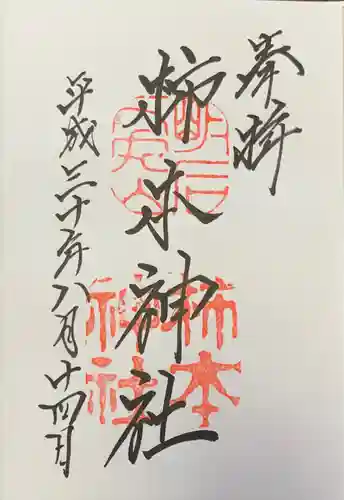 奉拝
柿本神社
平成三十年八月十四日
明石
人丸山
柿本
神社